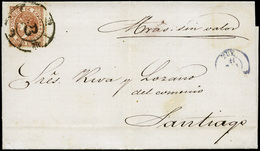 Mrās. sin valor
Sres. Riva y Lozano
del comercio
Santiago